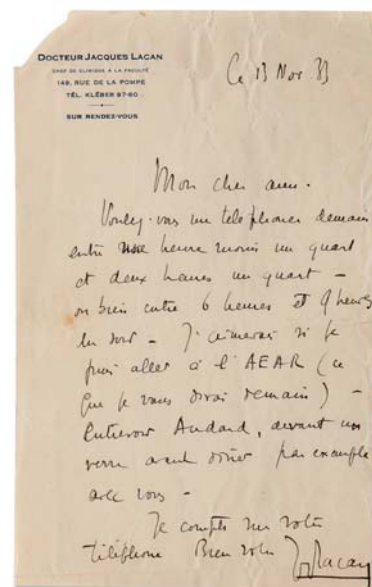 DOCTEUR JACQUES LACAN
CHEF DE CLINIQUE A LA FACULTÉ
149, RUE DE LA POMPE
TÉL. KLÉBER 97-60
SUR RENDEZ-VOUS
Ce 13 Nov 33
Mon cher ami.
Voulez-vous me téléphoner demain
entre une heure moins un quart
et deux heures un quart –
ou bien entre 6 heures et 9 heures
du soir – J'aimerais si je
puis aller à l'AEAR (ce
que je vous dirai demain) –
Entrevoir Audard, devant un
verre avant dîner par exemple
avec vous –
Je compte sur votre
téléphone Bien votre
J Lacan